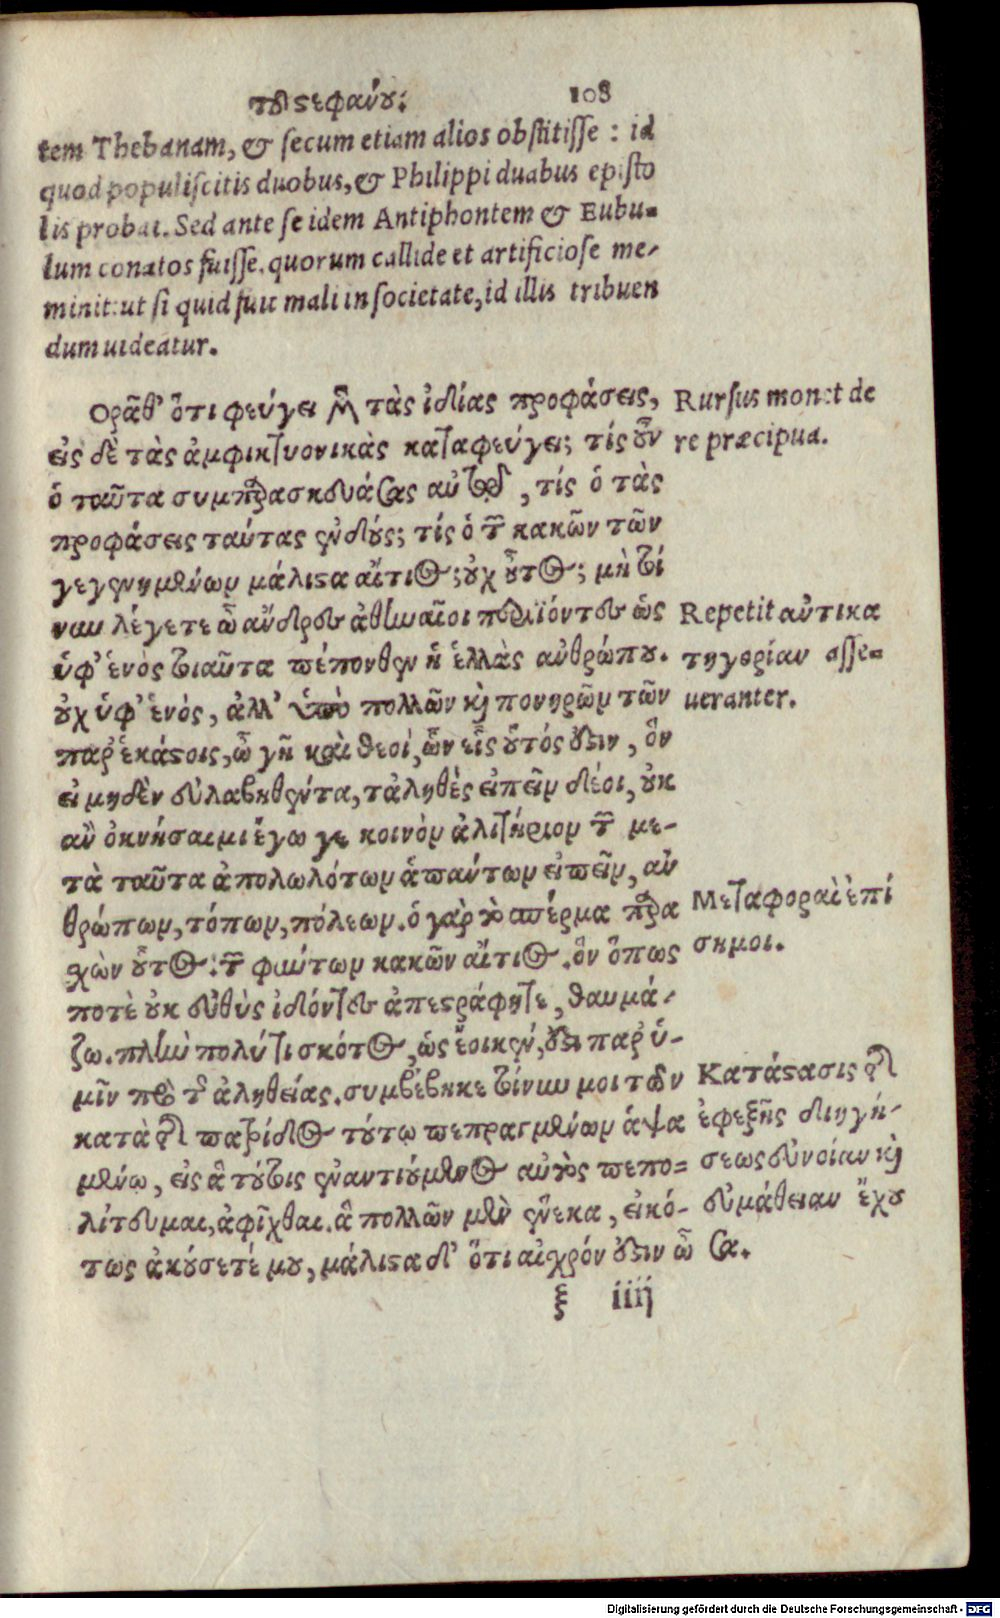 τοῦ στεφάνου. 108
tem Thebanam, & secum etiam alios obstitisse : id
quod populiscitis duobus, & Philippi duabus episto
lis probat. Sed ante se idem Antiphontem & Eubu-
lum conatos fuisse. quorum callide et artificiose me-
minit: ut si quid fuit mali in societate, id illis tribuen
dum uideatur.
Ορᾶθ' ὅτι φεύγει μὲν τὰς ἰδίας προφάσεις,
εἰς δὲ τὰς ἀμφικτυονικὰς καταφεύγει; τίς οὖν
ὁ ταῦτα συμπαρασκευάσας αὐτῷ, τίς ὁ τὰς
προφάσεις ταύτας ἐνδούς; τίς ὁ τῶν κακῶν τῶν
γεγενημένων μάλιστα αἴτιος; οὐχ οὗτος; μὴ τοί
νυν λέγετε ὦ ἄνδρες ἀθηναῖοι περιϊόντες ὡς
ὑφ' ἑνὸς τοιαῦτα πέπονθεν ἡ ἑλλὰς ἀνθρώπου.
οὐχ ὑφ' ἑνὸς, ἀλλ' ὑπὸ πολλῶν καὶ πονηρῶν τῶν
παρ' ἑκάστοις, ὦ γῆ καὶ θεοί, ὧν εἷς οὗτός ἐστιν, ὃν
εἰ μηδὲν εὐλαβηθέντα, τἀληθὲς εἰπεῖν δέοι, οὐκ
ἂν ὀκνήσαιμι ἔγωγε κοινὸν ἀλιτήριον τῶν με-
τὰ ταῦτα ἀπολωλότων ἁπάντων εἰπεῖν, ἀν
θρώπων, τόπων, πόλεων. ὁ γὰρ τὸ σπέρμα παρα
χὼν οὗτος. τῶν φύντων κακῶν αἴτιος. ὃν ὅπως
ποτὲ οὐκ εὐθὺς ἰδόντες ἀπεστράφητε, θαυμά-
ζω. πλὴν πολύ τι σκότος, ὡς ἔοικεν, ἐστι παρ' ὑ-
μῖν πρὸ τῆς ἀληθείας. συμβέβηκε τοίνυν μοι τῶν
κατὰ τῆς πατρίδος τούτῳ πεπραγμένων ἁψα
μένῳ, εἰς ἃ τούτοις ἐναντιούμενος αὐτὸς πεπο-
λίτευμαι, ἀφῖχθαι. ἃ πολλῶν μὲν ἕνεκα, εἰκό-
τως ἀκούσετέ μου, μάλιστα δ' ὅτι αἰσχρόν ἐστιν ὦ
ξ iiij
Rursus monet de
re præcipua.
Repetit αὖ τὴν κα
τηγορίαν asse-
ueranter.
Μεταφοραὶ ἐπί
σημοι.
Κατάστασις τῆς
ἐφεξῆς διηγή-
σεως εὔνοιαν καὶ
εὐμάθειαν ἔχου
σα.
Digitalisierung gefördert durch die Deutsche Forschungsgemeinschaft - DFG